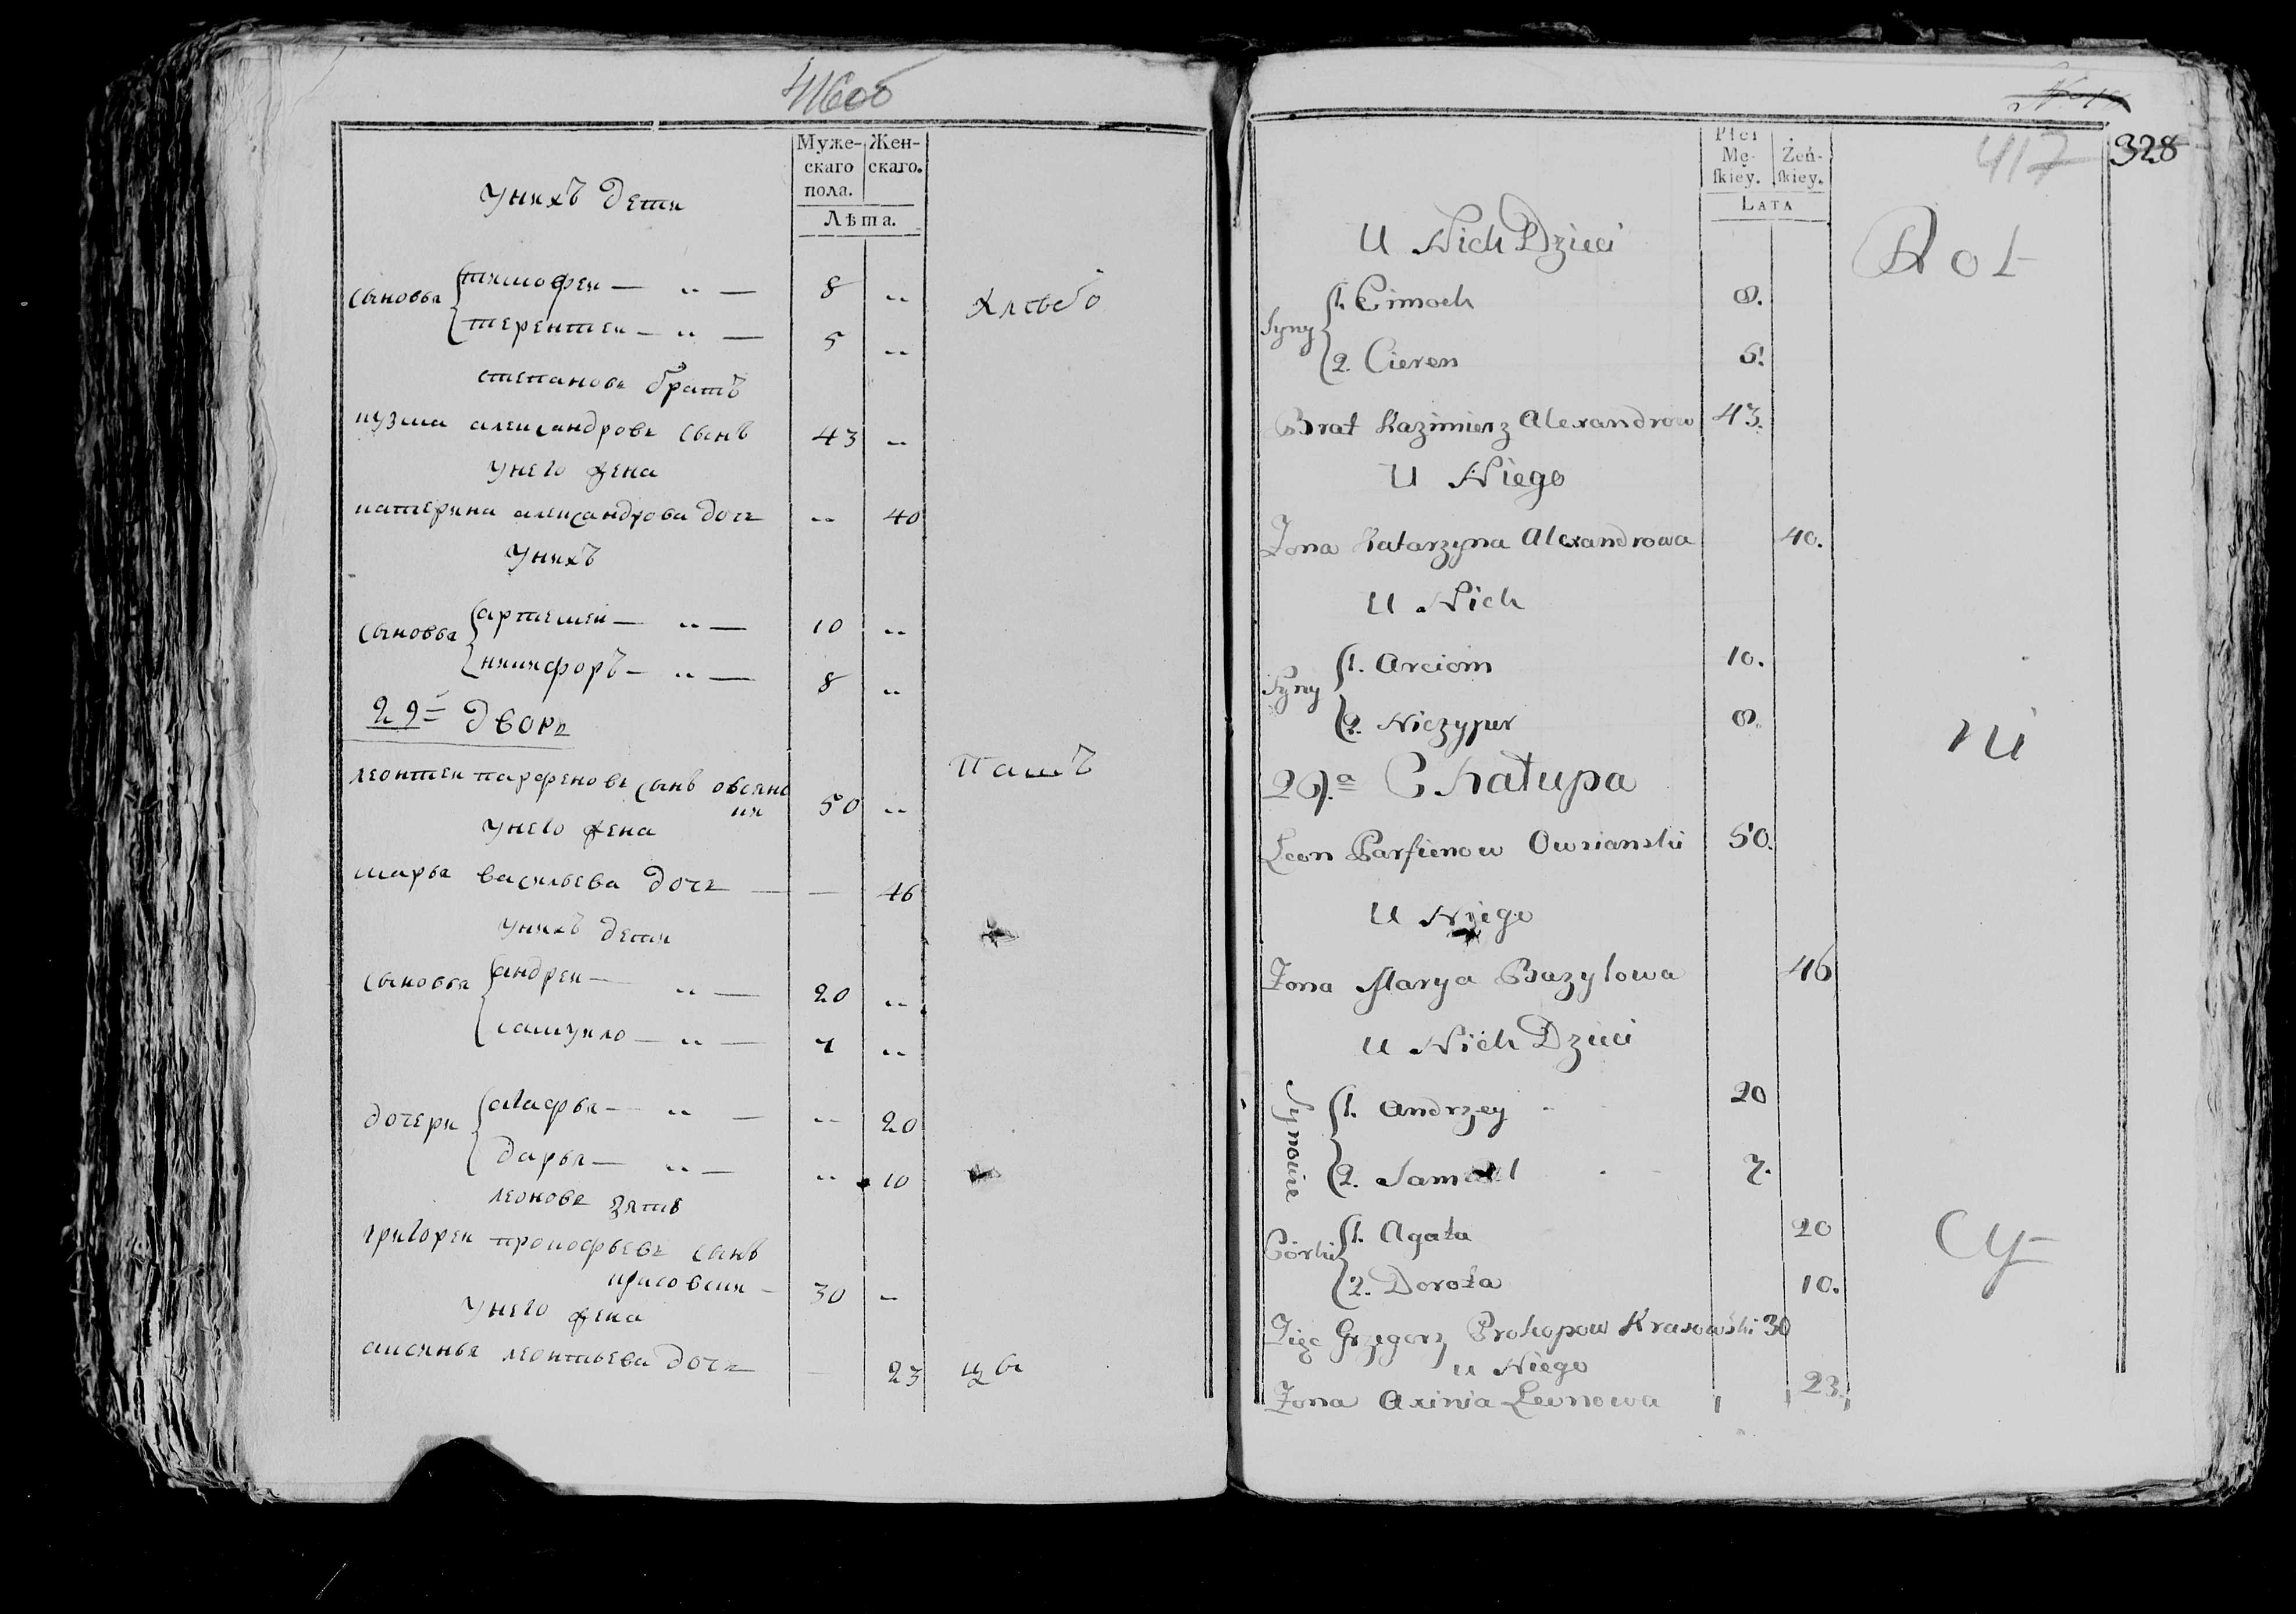 416об
Муже-
скаго
пола.
Жен-
скаго.
Лѣта.
унихъ дети
сыновья
тимофеи — „ — 8 „
хлебо
терентеи — „ — 5 „
степановъ братъ
кузма александровъ сынъ 43 „
унего жена
катерина александрова дочь „ 40
унихъ
сыновья
артемеи — „ — 10 „
никифоръ — „ — 8 „
29й дворъ
пашъ
леонтеи парфеновъ сынъ овсянс
ки 50 „
унего жена
марья васильева дочь — — 46
унихъ дети
сыновья
андреи — „ — 20 „
самуило — „ — 7 „
дочери
агафья — „ — „ 20
дарья — „ — „ 10
леоновъ зять
григореи прокофьевъ сынъ
красовски — 30 „
унего жена
аксинья леонтьева дочь — 23
417
328
Płci
Mę-
ſkiey.
Żeń-
ſkiey.
LATA
U Nich Dzieci
Rot
Syny
1. Cimoch 8.
2. Cieren 5.
Brat Kazimierz Alexandrow 43.
U Niego
Żona Katarzyna Alexandrowa 40.
U Nich
Syny
1. Arciom 10.
2. Niczypur 8.
ni
29.a Chałupa
Leon Parfienow Owsianski 50.
U Niego
Żona Marya Bazylowa 46
U Nich Dzieci
Synowie
1. Andrzey 20
2. Samuel 7.
Córki
1. Agata 20
cy
2. Dorota 10.
Zięć Grzegorz Prokopow Krasowski 30
U Niego
Żona Axinia Leonowa 23.